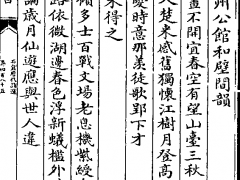 州公館和壁間韻
畫不開宜春空有望臺三秋
大楚来感舊獨憐江樹月登高
愛時意那羡徒歌郢下才
未得之
賴多士百戰文場老息機紫綬
路依微湖邊春色浮新蟻檻外
論歲月仙遊應與世人違